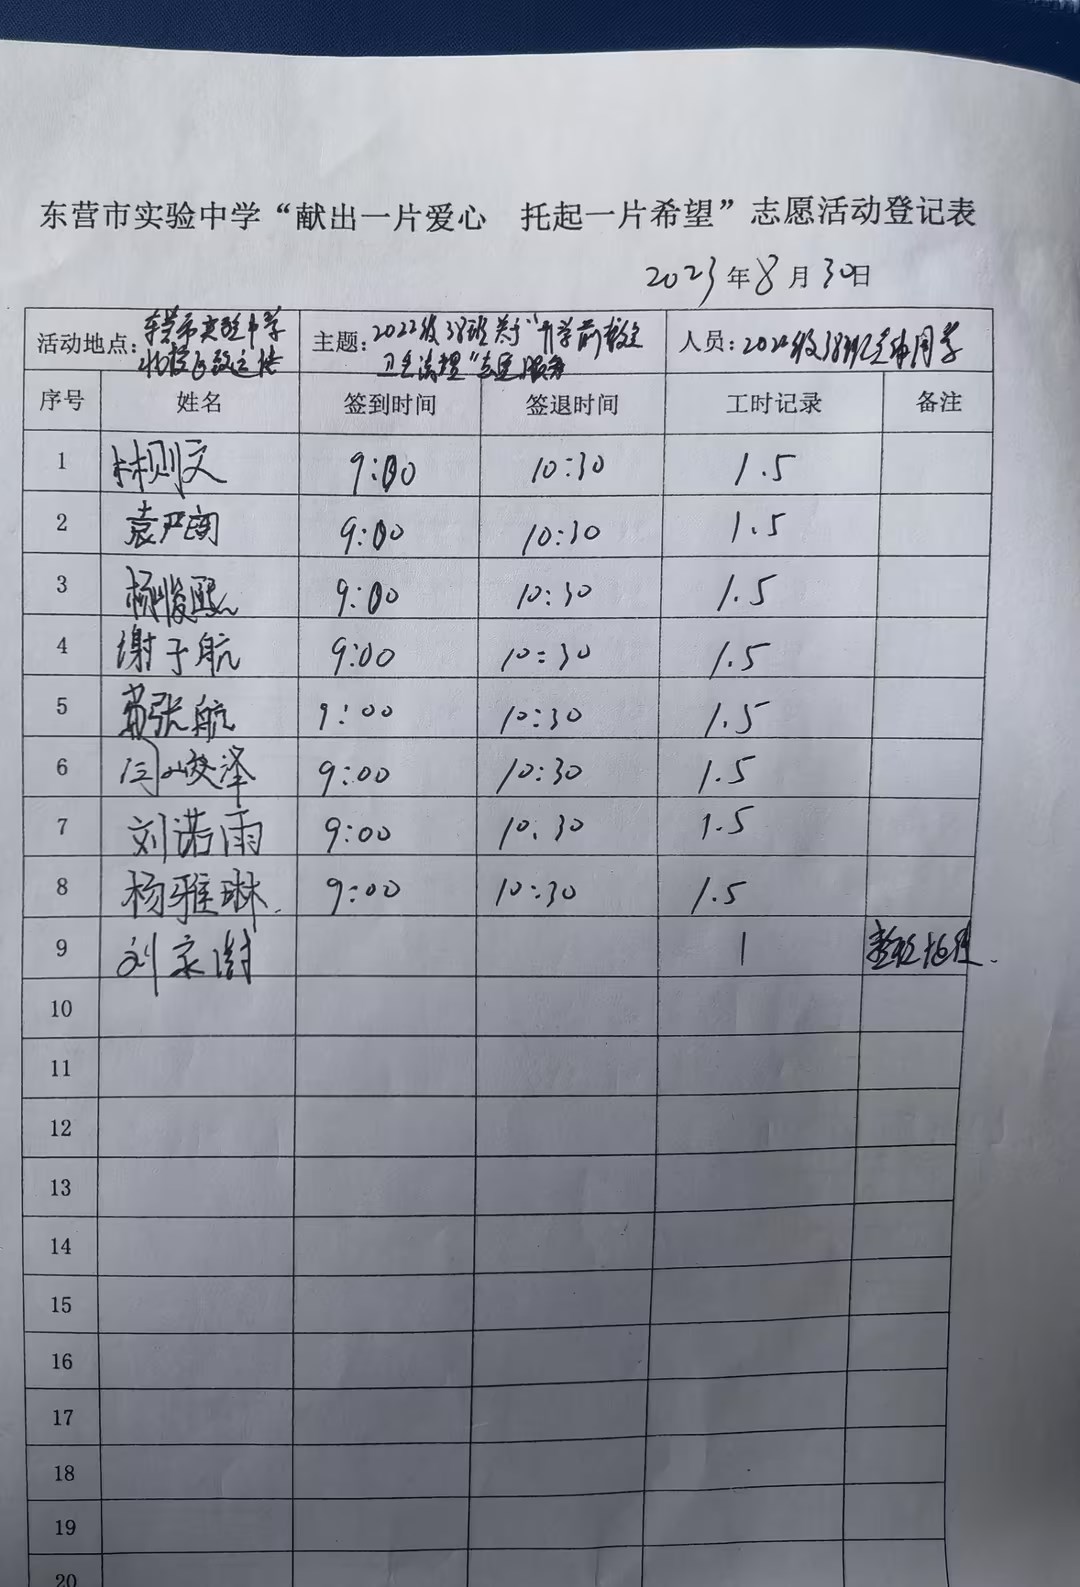 东营市实验中学“献出一片爱心 托起一片希望”志愿活动登记表
2023年8月30日
活动地点：东营市实验中学
主题：2022级38班关于“开学前校园
卫生清理”志愿服务
人员：2022级38班全体同学
序号 姓名 签到时间 签退时间 工时记录 备注
1 林则文 9:00 10:30 1.5
2 袁严闳 9:00 10:30 1.5
3 杨峻熙 9:00 10:30 1.5
4 谢于航 9:00 10:30 1.5
5 张航 9:00 10:30 1.5
6 闫峻泽 9:00 10:30 1.5
7 刘诺雨 9:00 10:30 1.5
8 杨雅琳 9:00 10:30 1.5
9 刘家澍 1
10
11
12
13
14
15
16
17
18
19
20